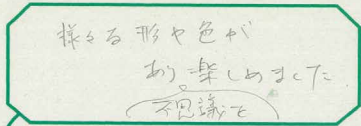 様々る形や色が
あり楽しめました
不思議を